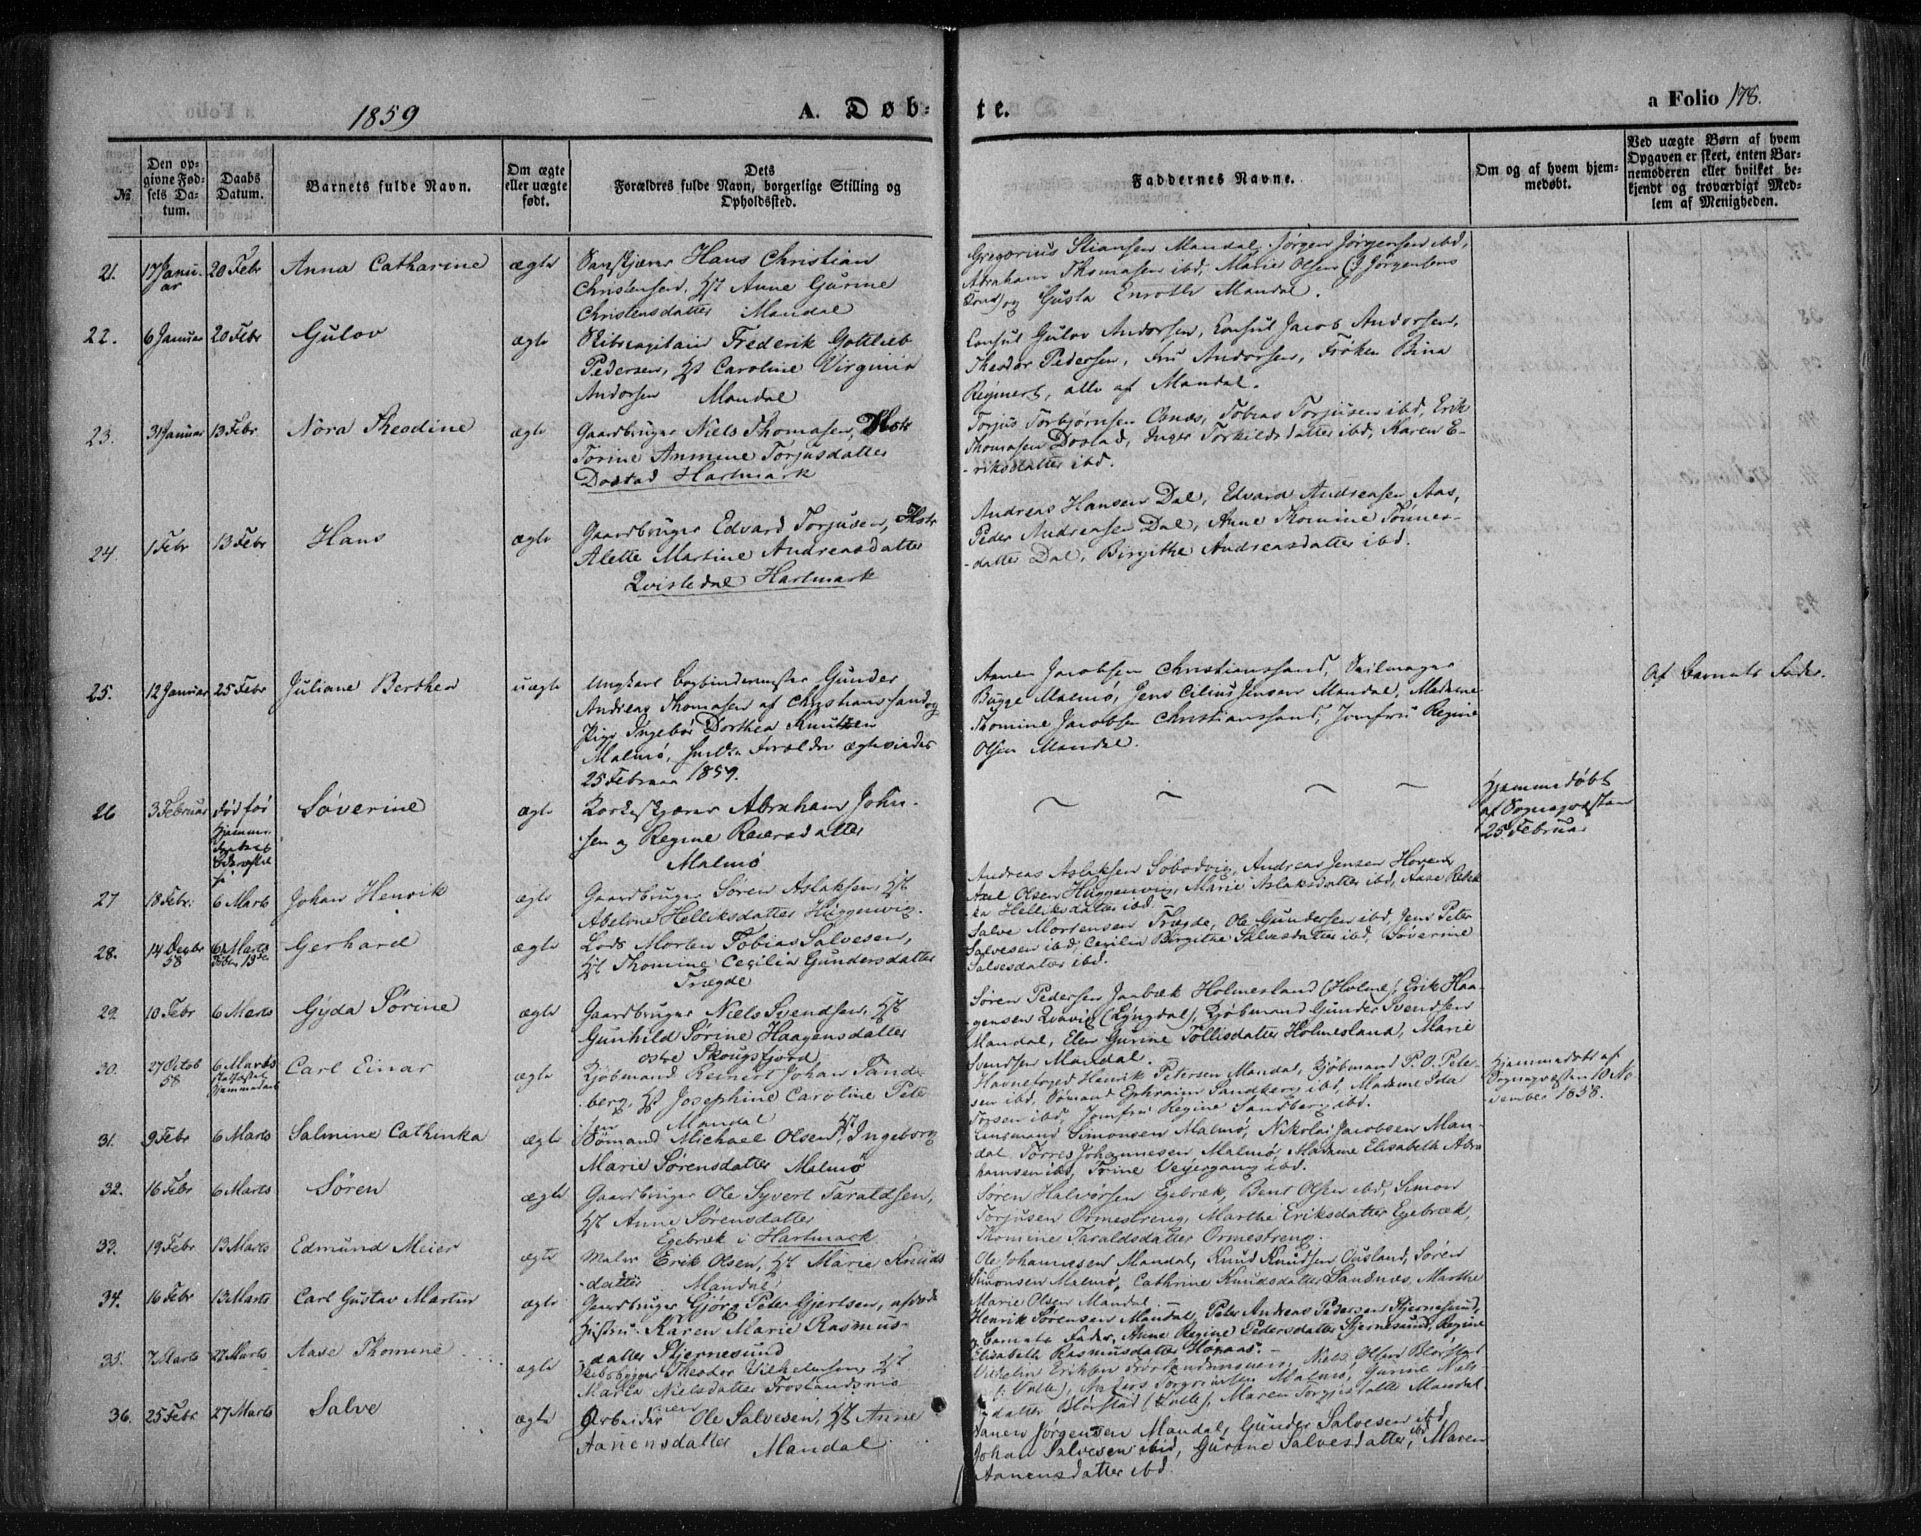 1859
A. Døb-
te.
a Folio 178.
№
Den op-
givne Fød-
sels Da-
tum.
Daabs
Datum.
Barnets fulde Navn.
Om ægte
eller uægte
født.
Dets
Forældres fulde Navn, borgerlige Stilling og
Opholdssted.
Faddernes Navne.
Om og af hvem hjem-
medøbt.
Ved uægte Børn af hvem
Opgaven er skeet, enten Bar-
nemoderen eller hvilket be-
kjendt og troværdigt Med-
lem af Menigheden.
21. 17 Janu-
ar
20 Febr
Anna Catharine
ægte
Hans Christian
Christensen, Hst Anne Gurine
Christensdatter Mandal
Gregorius Stiansen Mandal, Jørgen Jørgensen ibd,
Abraham Thomasen ibd, Marie Olsen (J Jørgensens
Kone) og Gusta Enroth Mandal.
22. 6 Januar 20 Febr
Gulov
ægte
Skibscapitain Frederik Gottlieb
Pedersen, Hst Caroline Virginia
Andorsen Mandal
Consul Gulov Andorsen, Consul Jacob Andorsen,
Theodor Pedersen, Fru Andorsen, Frøken Bina
Reginert, alle af Mandal.
23. 31 Januar 13 Febr
Nora Theodine
ægte
Gaardbruger Niels Thomasen, Hstr
Torine Anmine Torjusdatter
Dostad Hartmark
Torjus Torbjørnsen Osnæs, Tobias Torjusen ibd, Erik
Thomasen Dostad, Inger Torkildsdatter ibd, Karen E-
-riksdatter ibd.
24. 1 Febr 13 Febr
Hans
ægte
Gaardbruger Edvard Torjusen, Hstr
Alette Martine Andreasdatter
Qvisledal Hartmark
Andreas Hansen Dal, Edvard Andreasen Aas,
Peder Andreasen Dal, Anne Thomine Tønnes-
-datter Dal, Birgithe Andreasdatter ibd.
25. 12 Januar 25 Febr
Juliane Berthea
uægte
Ungkarl Bogbindermester Gunder
Andreas Thomasen af Christianssand og
Pige Ingebor Dorthea Knutzen
Malmø, Forældre ægteviedes
25 Februar 1859.
Jacobsen Christianssand, Seilmager
Bugge Malmø, Jens Cilius Jensen Mandal, Madame
Thomine Jacobsen Christianssand, Jomfru Regine
Olsen Mandal.
Af Barnets Fader.
26 3 Februar
død før
Søverine
ægte
Abraham John-
sen og Regine Reiersdatter
Malmø
~ ~ ~ ~
Hjemmedøbt
af Sognepræsten
25 Februar
27 18 Febr: 6 Marts
Johan Henrik
ægte
Gaardbruger Søren Aslaksen, Hst
Abelone Helliksdatter Huggenvig.
Andreas Aslaksen Sobodvig, Andreas Jensen
Axel Olsen Huggenvig, Marie Aslaksdatter ibd, Aase Rebek
ka Helliksdatter ibd.
28. 14 Decbr
58
6 Marts
Gerhard
ægte
Lods Morten Tobias Salvesen,
Hst Thomine Cecilia Gundersdatter
Trægde
Salve Mortensen Trægde, Ole Gundersen ibd, Jens Peter
Salvesen ibd, Cecilia Birgithe Salvesdatter ibd, Søverine
Salvesdatter ibd.
29. 10 Febr 6 Marts
Gyda Sørine
ægte
Gaardbruger Niels Svendsen, Hst
Gunhild Sørine Haagensdatter
østre Skougsfjord,
Søren Pedersen Jaabæk Holmesland (Holme), Erik Haa-
gensen Qvavig (Lyngdal), Kjøbmand Gunder Svendsen
Mandal, Elen Gurine Tollisdatter Holmesland, Marie
Svendsen Mandal.
30. 27 Octob
58
6 Marts
Carl Einar
ægte
Kjøbmand Reinert Johan Sand-
berg, Hst Josephine Caroline Peter
sen Mandal
Havnefoged Henrik Petersen Mandal, Kjøbmand P.O. Peter-
sen ibd, Sømand Ephraim Sandberg ibd, Madame Ida
ibd, Jomfru Regine Sandberg ibd.
Hjemmedøbt af
Sognepræsten 10 No-
vember 1858.
31. 9 Febr 6 Marts
Salmine Cathinka
ægte
Sømand Michael Olsen, Hst Ingeborg
Marie Sørensdatter Malmø
Simonsen Malmø, Nikolai Jacobsen Man-
dal, Torres Johannesen Malmø, Madame Elisabeth Abra
hamsen ibd, Trine Veiergang ibd.
32. 16 Febr 6 Marts
Søren
ægte
Gaardbruger Ole Syvert Taraldsen,
Hst Anne Sørensdatter
Egebræk i Hartmark
Søren Halvorsen Egebræk, Bent Olsen ibd, Simon
Torjusen Ormestreng, Marthe Eriksdatter Egebræk,
Thomine Taraldsdatter Ormestreng.
33. 19 Febr 13 Marts
Edmund Meier
ægte
Maler Erik Olsen, Hst Marie Knuds
-datter Mandal
Ole Johannesen Mandal, Knud Knudsen Ousland, Søren
Simonsen Malmø, Cathrine Knudsdatter Sandnæs, Marthe
Marie Olsen Mandal. —
34. 16 Febr 13 Marts
Carl Gustav Martin
ægte
Gaardbruger Gjørg Peter Gjertsen, afdøde
Hustru Karen Marie Rasmus-
datter Stjernesund
Henrik Sørensen Mandal, Peter Andreas Pedersen Stjernesund,
Barnets Fader, Anne Regine Pedersdatter Stjernesund, Regine
Elisabeth Rasmusdatter Høgaas. —
35. 7 Marts 27 Marts
Aase Thomine
ægte
Skibsbygger Theodor Vilhelmsen, Hst
Maria Nielsdatter Froslandsmo
nen
Vilhelm Eriksen Niels Olsen Blørstad
Anders Torgrimsen Malmø, Gurine Niels-
datter Blørstad, Maren Torgjusdatter Mandal
36. 25 Febr 27 Marts
Salve
ægte
Arbeider Ole Salvesen, Hst Anne
Aanensdatter Mandal
Aanen Jørgensen Mandal, Gunder Salvesen ibd,
Johan Salvesen ibid, Gurine Salvesdatter, ibd Maren
Aanensdatter ibd.